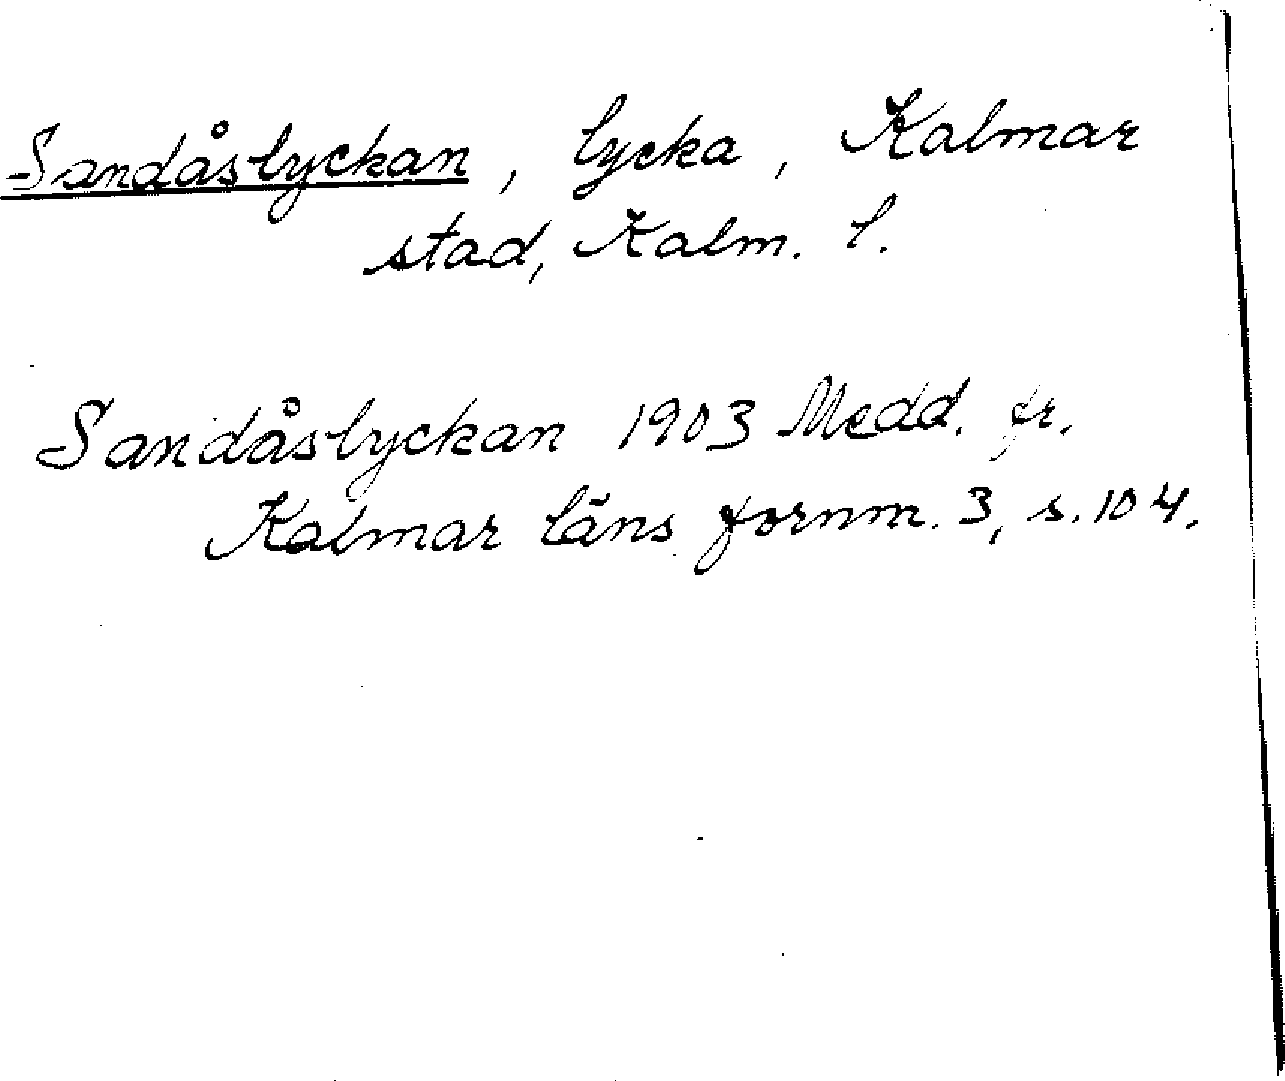 Sandåslyckan, lycka, Kalmar
stad, Kalm. l.
Sandåslyckan 1903 Medd. fr.
Kalmar läns fornm. 3, s. 104.